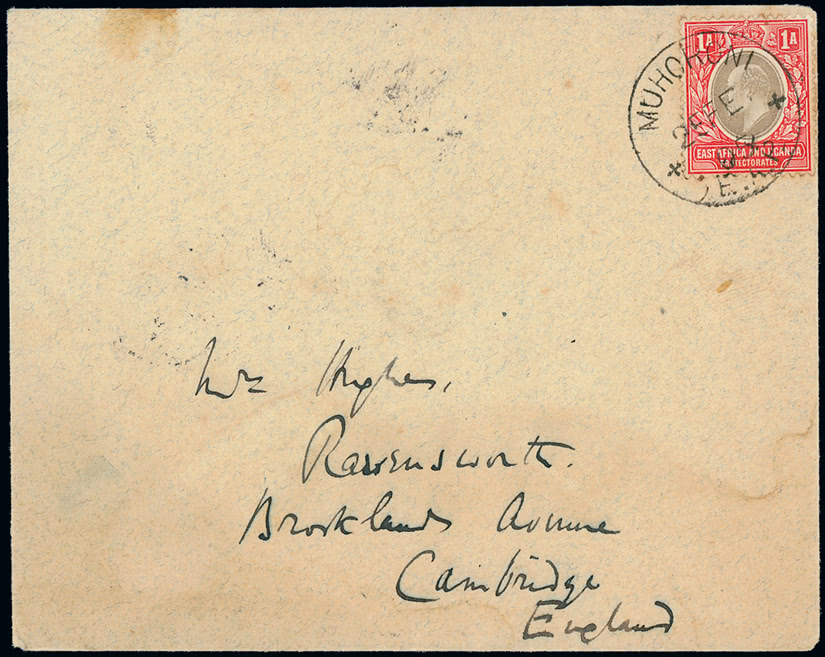 1A 1A
MUHORONI
EAST AFRICA AND UGANDA
PROTECTORATES
Mrs Hughes,
Ravensworth.
Brooklands Avenue
Cambridge
England